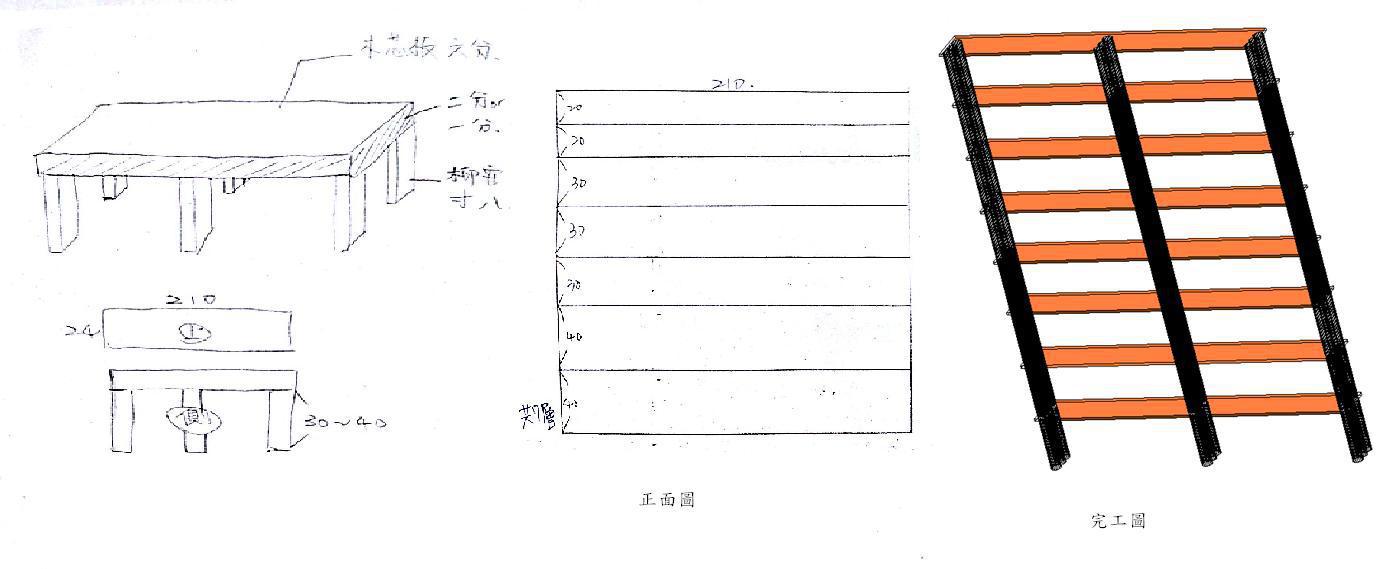 木芯板 六分.
二分or
一分.
柳安
寸八.
210
24
上
側
30~40
210.
20
20
30
30
30
40
40
共7層
正面圖
完工圖